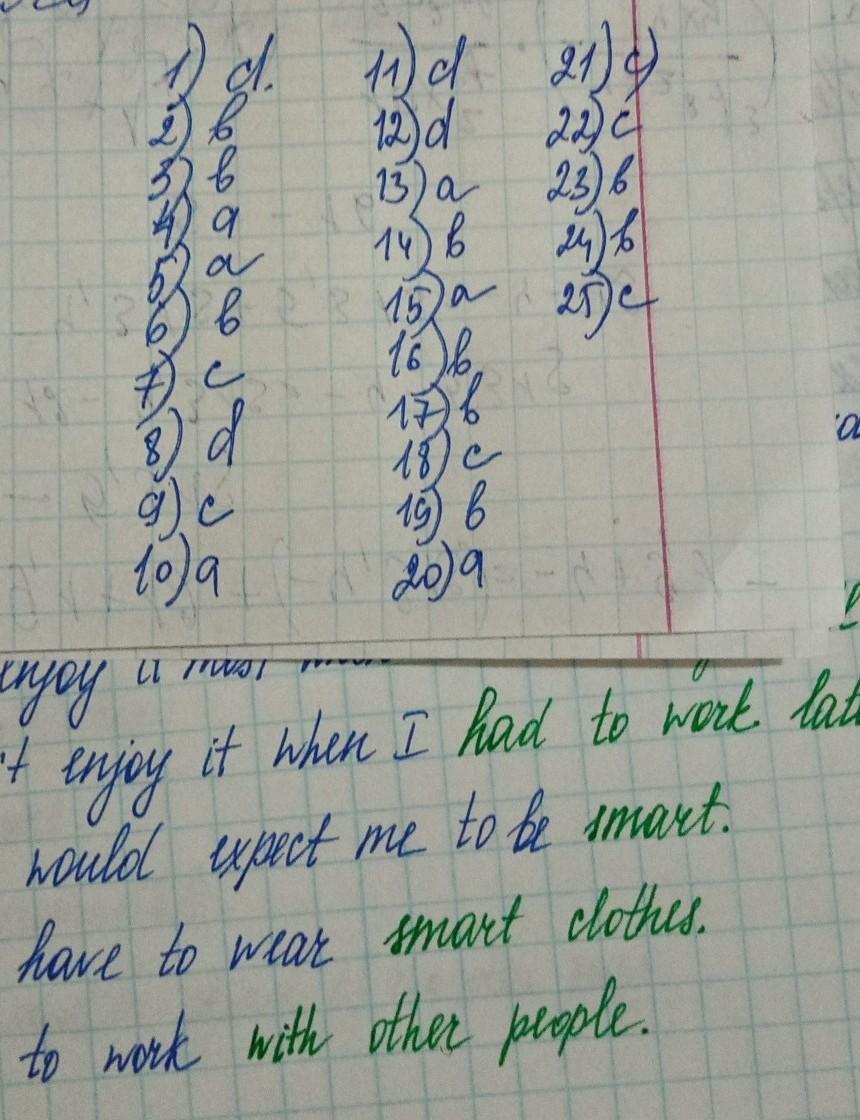 1) d.
2) b
3) b
4) a
5) a
6) b
7) c
8) d
9) c
10) a
11) d
12) d
13) a
14) b
15) a
16) b
17) b
18) c
19) b
20) a
21) c)
22) c
23) b
24) b
25) c
enjoy it most
't enjoy it when I had to work late
would expect me to be smart.
have to wear smart clothes.
to work with other people.